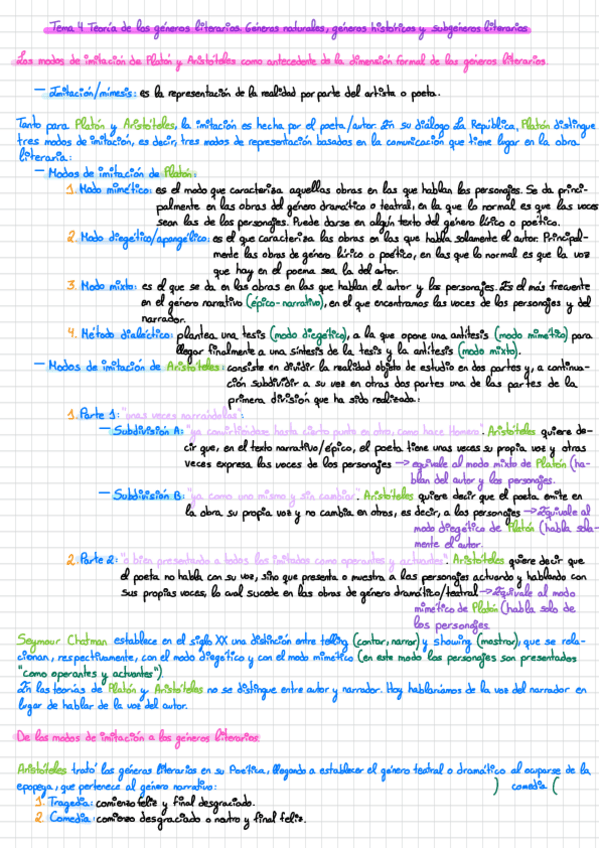 Tema 4 Teoría de los géneros literarios Géneros naturales, géneros históricos y subgéneros literarios
Los modos de imitación de Platón y Aristóteles como antecedente de la dimensión formal de los géneros literarios.
— Imitación/mímesis: es la representación de la realidad por parte del artista o poeta.
Tanto para Platón y Aristóteles, la imitación es hecha por el poeta/autor. En su diálogo La República, Platón distingue
tres modos de imitación, es decir, tres modos de representación basados en la comunicación que tiene lugar en la obra
literaria:
— Modos de imitación de Platón:
1. Modo mimético: es el modo que caracteriza aquellas obras en las que hablan los personajes. Se da princi-
palmente en las obras del género dramático o teatral, en la que lo normal es que las voces
sean las de los personajes. Puede darse en algún texto del género lírico o poético.
2. Modo diegético/apangélico: es el que caracteriza las obras en las que habla solamente el autor. Principal-
mente las obras de género lírico o poético, en las que lo normal es que la voz
que hay en el poema sea la del autor.
3. Modo mixto: es el que se da en las obras en las que hablan el autor y los personajes. Es el más frecuente
en el género narrativo (épico-narrativo), en el que encontramos las voces de los personajes y del
narrador.
4. Método dialéctico: plantea una tesis (modo diegético), a la que opone una antítesis (modo mimético) para
llegar finalmente a una síntesis de la tesis y la antítesis (modo mixto).
— Modos de imitación de Aristóteles: consiste en dividir la realidad objeto de estudio en dos partes y, a continua-
ción subdividir a su vez en otras dos partes una de las partes de la
primera división que ha sido realizada:
1. Parte 1: "unas veces narrándolas":
— Subdivisión A: "ya convirtiéndose hasta cierto punto en otro, como hace Homero". Aristóteles quiere de-
cir que, en el texto narrativo/épico, el poeta tiene unas veces su propia voz y otras
veces expresa las voces de los personajes → equivale al modo mixto de Platón (ha-
blan del autor y los personajes.
— Subdivisión B: "ya como uno mismo y sin cambiar". Aristóteles quiere decir que el poeta emite en
la obra su propia voz y no cambia en otros, es decir, a los personajes → Equivale al
modo diegético de Platón (habla sola-
mente el autor.
2. Parte 2: "o bien presentando a todos los imitados como operantes y actuantes". Aristóteles quiere decir que
el poeta no habla con su voz, sino que presenta o muestra a los personajes actuando y hablando con
sus propias voces, lo cual sucede en las obras de género dramático/teatral → Equivale al modo
mimético de Platón (habla solo de
los personajes.
Seymour Chatman establece en el siglo XX una distinción entre telling (contar, narrar) y showing (mostrar), que se rela-
cionan, respectivamente, con el modo diegético y con el modo mimético (en este modo los personajes son presentados
"como operantes y actuantes").
En las teorías de Platón y Aristóteles no se distingue entre autor y narrador. Hoy hablaríamos de la voz del narrador en
lugar de hablar de la voz del autor.
De los modos de imitación a los géneros literarios.
Aristóteles trató los géneros literarios en su Poética, llegando a establecer el género teatral o dramático al ocuparse de la
epopeya, que pertenece al género narrativo: ) comedia (
1. Tragedia: comienzo feliz y final desgraciado.
2. Comedia: comienzo desgraciado o neutro y final feliz.